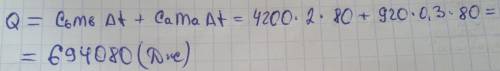 Q = CвmвΔt + CаmаΔt = 4200·2·80 + 920·0,3·80 =
= 694080 (Дже)